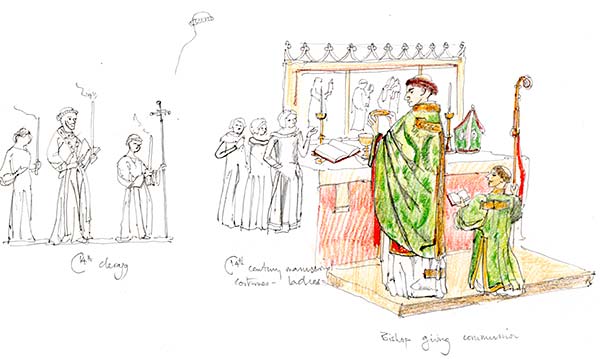 C14th clergy
C14th century manuscript
costumes - ladies -
Bishop giving communion